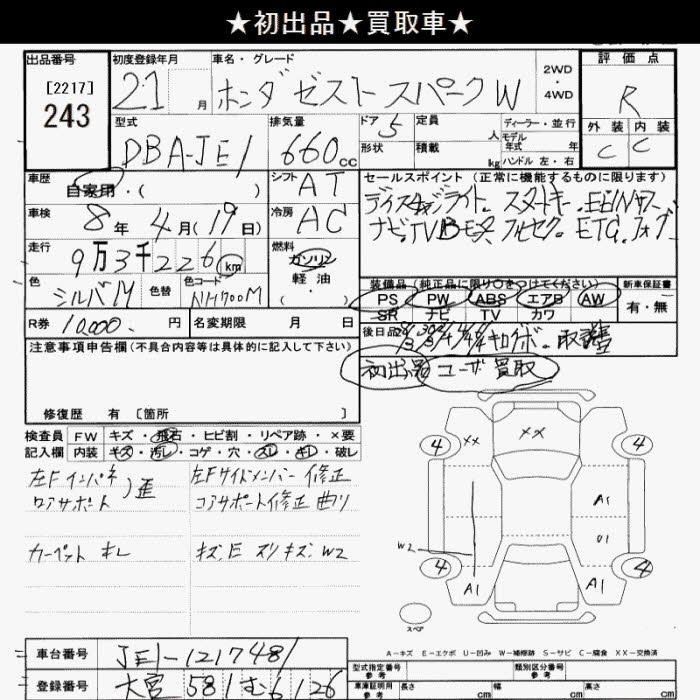 ★初出品★買取車★
出品番号 初度登録年月 車名・グレード 評価点
[2217]
243
21 月 ホンダ ゼスト スパーク W
2WD
・
4WD
R
型式 排気量 ドア 5 定員 人 ディーラー・並行 外装 内装
DBA-JE1 660cc 形状 積載 kg モデル年式 年 ハンドル 左・右 C C
車歴 シフト AT セールスポイント (正常に機能するものに限ります)
自家用・( ) ディスチャージライト。スマートキー。
車検 冷房 AC ナビ。TV フルセグ。ETC。フォグ
8年 4月(19日)
走行 燃料
9万3千226km ガソリン・軽油・( )
色 色替 色コード 装備品 (純正品に限り○をつけてください) 新車保証書
シルバM NH700M PS PW ABS エアB AW 有・無
SR ナビ TV カワ
R券 10,000. 円 名変期限 月 日 後日品
注意事項申告欄(不具合内容等は具体的に記入して下さい) 初出品 ユーザー買取
修復歴 有 [箇所 ]
検査員 FW キズ・飛石・ヒビ割・リペア跡・×要
記入欄 内装 キズ・汚レ・コゲ・穴・スレ・キレ・破レ
左Fインパネ 左Fサイドメンバー修正
コアサポート 歪 コアサポート修正 曲リ
カーペット キレ キズ、E スリキズ、W2
4 XX XX 4
A1
U1
W2
4 A1 A1 4
スペア
A-キズ E-エクボ U-凹み W-補修跡 S-サビ C-腐食 XX-交換済
車台番号 JE1-1217481 型式指定番号 参考 類別区分番号 参考
登録番号 大宮 581 む 6126 車庫証明用 参考 長さ cm 幅 cm 高さ cm